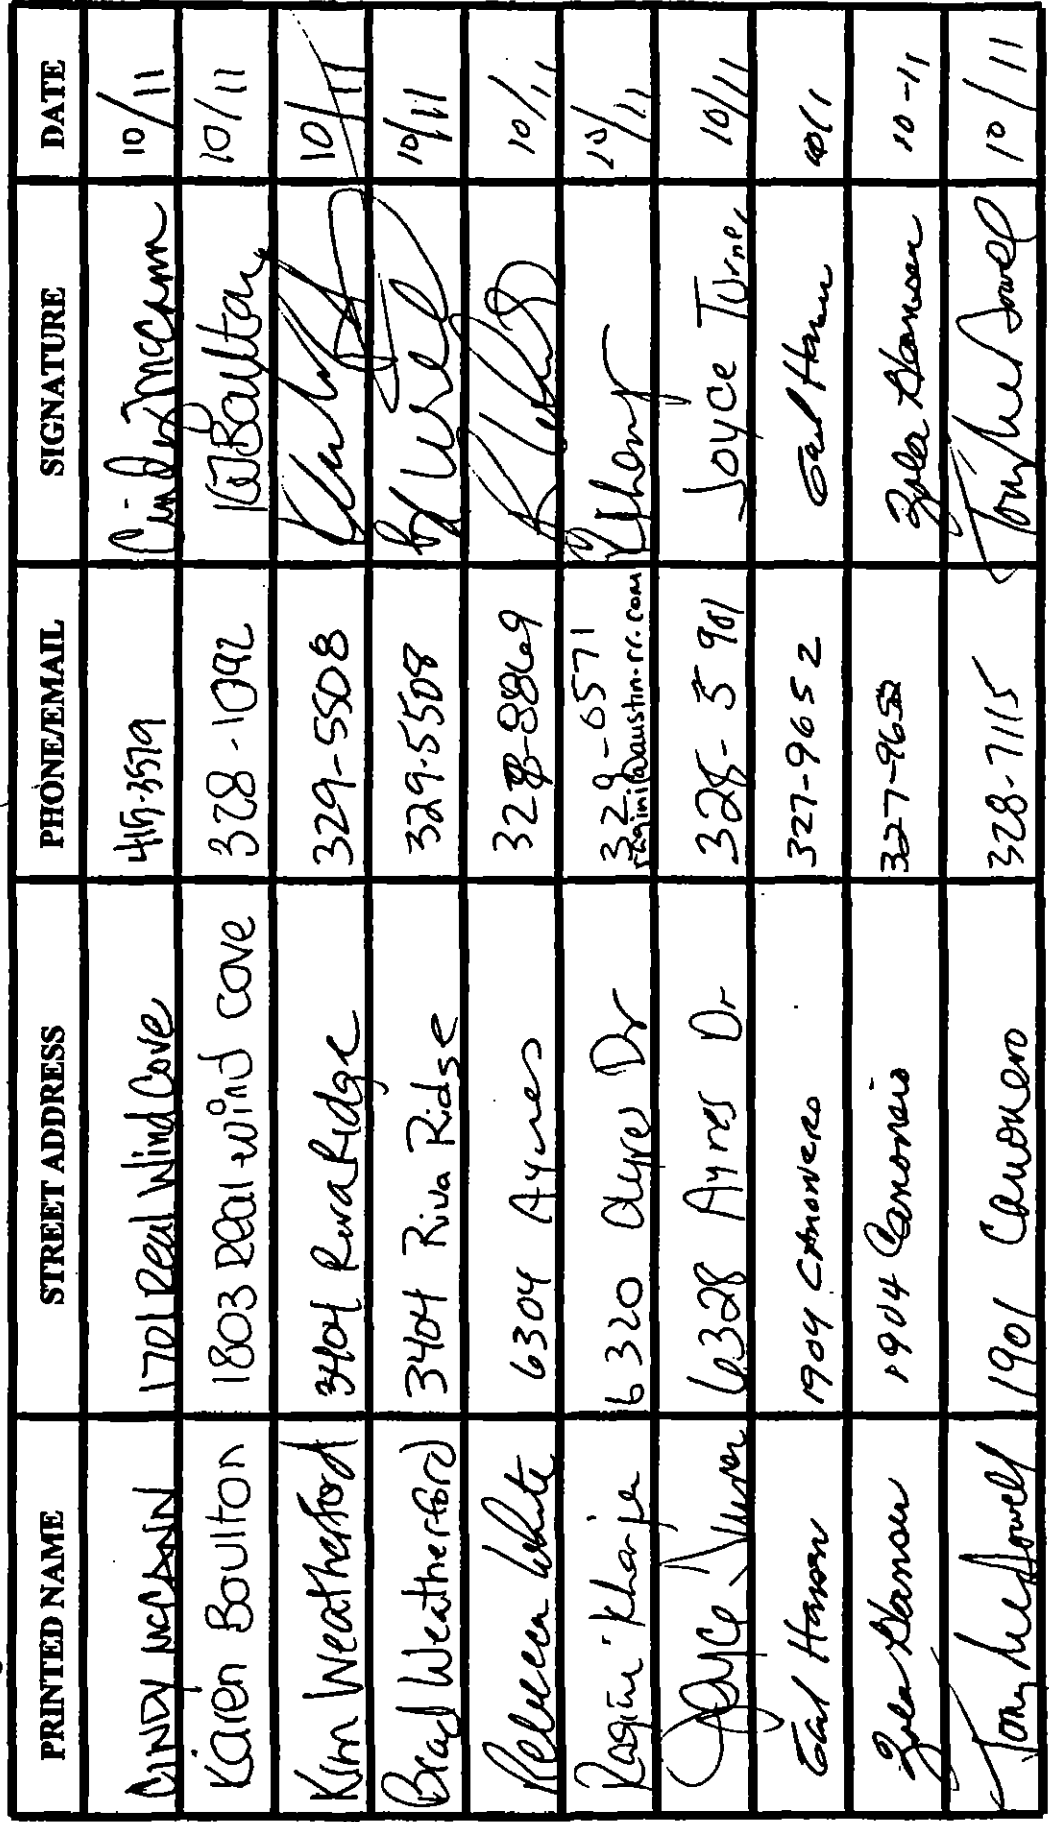 PRINTED NAME STREET ADDRESS PHONE/EMAIL SIGNATURE DATE
CINDY MCCANN 1701 Real Wind Cove 415-3579 Cindy McCann 10/11
Karen Boulton 1803 Real wind cove 328-1092 K Boulton 10/11
Kim Weatherford 3404 Riva Ridge 329-5508 10/11
Brad Weatherford 3404 Riva Ridge 329-5508 10/11
Rebecca White 6304 Ayres 10/11
Ragini Kharje 6320 Ayres Dr 329-0571 10/11
ragini@austin.rr.com
Joyce Turner 6328 Ayres Dr 328-5901 Joyce Turner 10/11
Earl Hanson 1904 CANONERO 327-9652 Earl Hanson
Hanson 1904 Canonero 327-9652 Hanson 10-11
Tony McDowell 1901 Canonero 328-7115 Tony McDowell 10/11